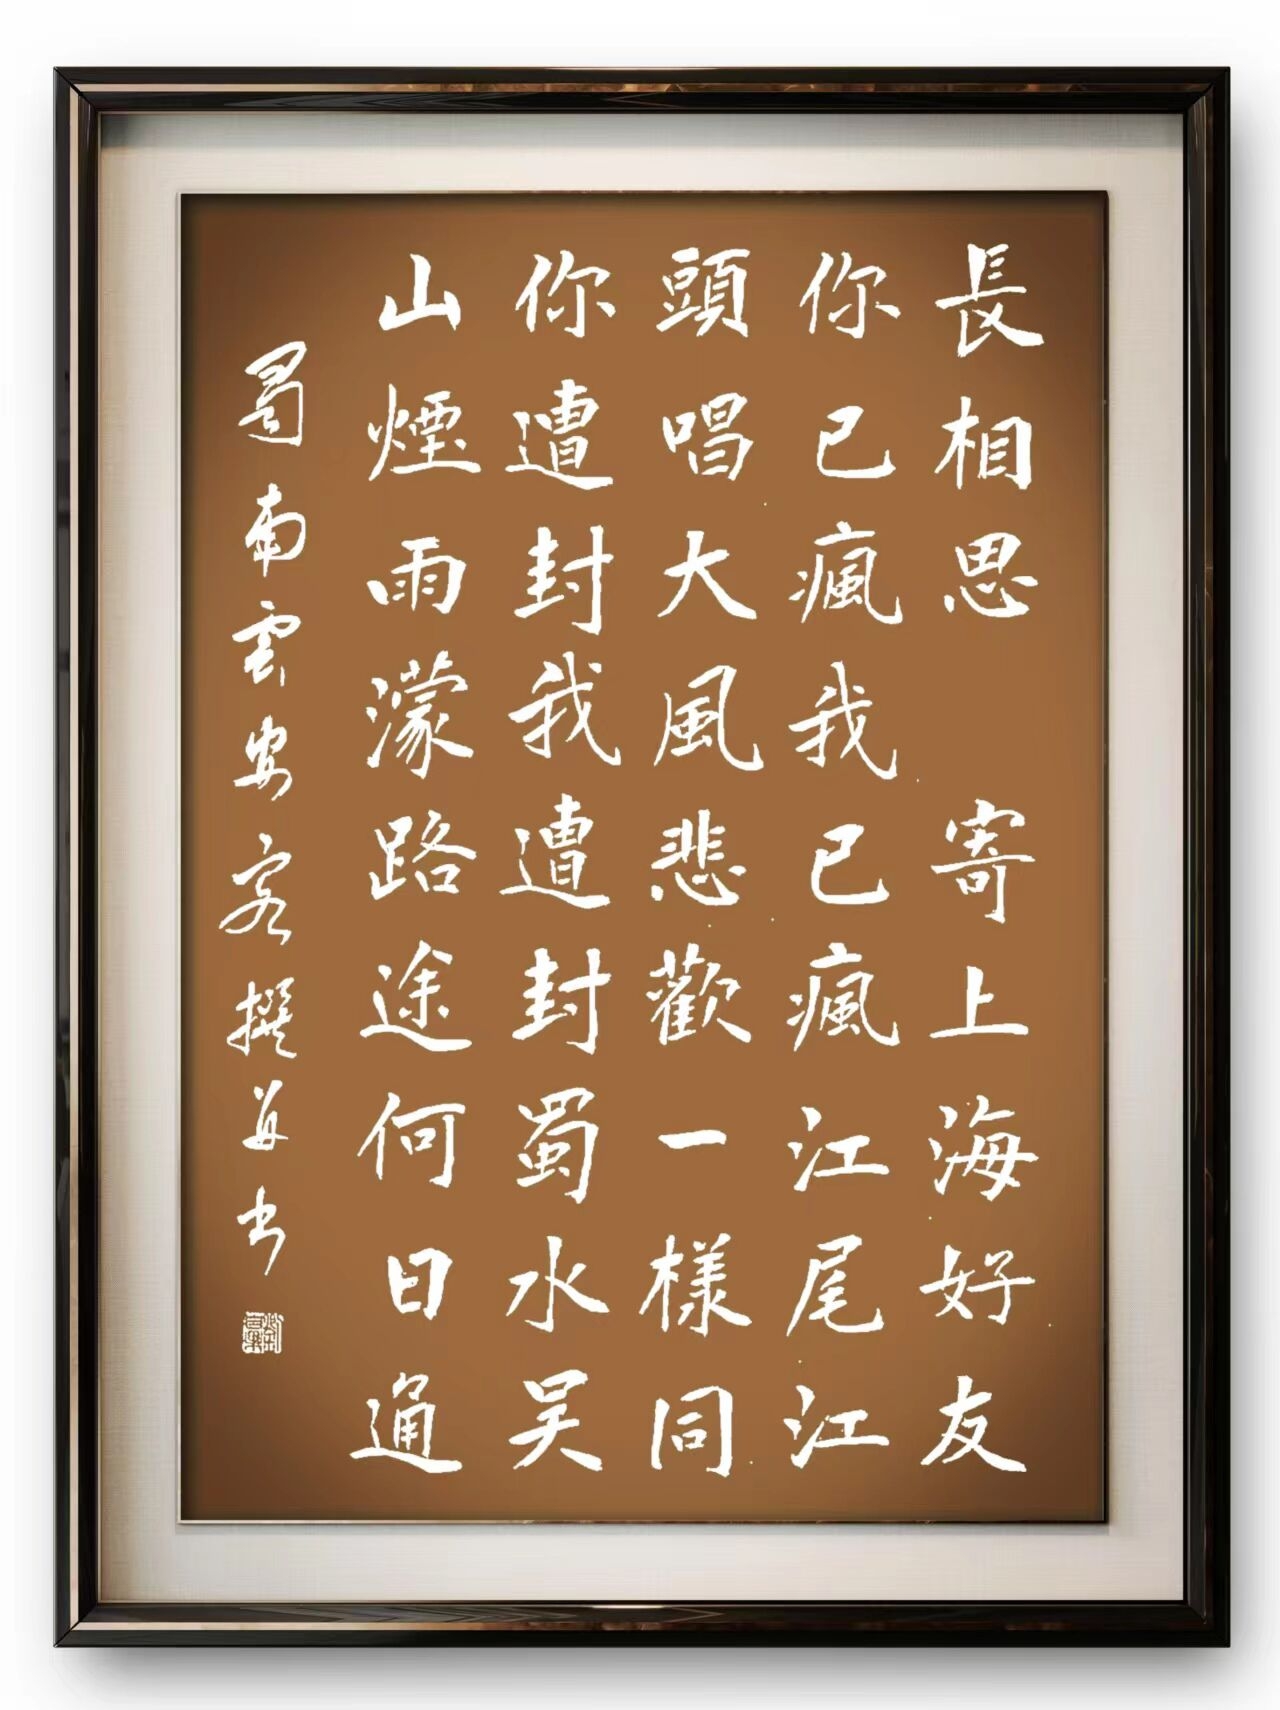 長相思 寄上海好友
你已瘋我已瘋江尾江
頭唱大風悲歡一樣同
你遭封我遭封蜀水吴
山煙雨濛路途何日通
蜀南雲安客撰並书